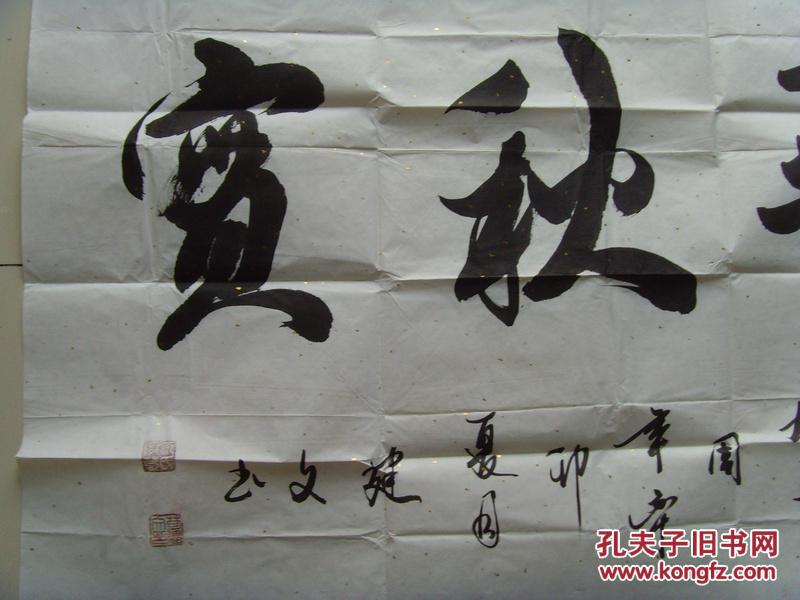 秋實
周年辛卯夏月建文书
孔夫子旧书网
www.kongfz.com